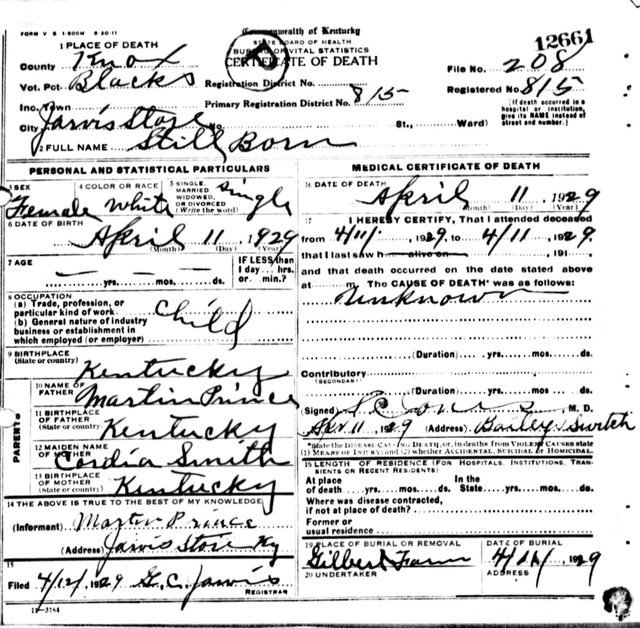 FORM V S 1-500M 8 20-11
Commonwealth of Kentucky
STATE BOARD OF HEALTH
BUREAU OF VITAL STATISTICS
CERTIFICATE OF DEATH
12661
1 PLACE OF DEATH
County Knox
File No. 208
Vot. Pct. Blacks
Registration District No.
Registered No. 815
Inc. Town
Primary Registration District No. 815
[If death occurred in a hospital or institution, give its NAME instead of street and number.]
City Jarvis Store No. St., Ward)
2 FULL NAME Still Born
PERSONAL AND STATISTICAL PARTICULARS
3 SEX Female
4 COLOR OR RACE White
5 SINGLE, MARRIED, WIDOWED, OR DIVORCED (Write the word) Single
6 DATE OF BIRTH
April 11 1929
(Month) (Day) (Year)
7 AGE
IF LESS than 1 day...hrs. or min.?
yrs. mos. ds.
8 OCCUPATION
(a) Trade, profession, or particular kind of work
(b) General nature of industry business or establishment in which employed (or employer)
Child
9 BIRTHPLACE
(State or country) Kentucky
PARENTS
10 NAME OF FATHER Martin Prince
11 BIRTHPLACE OF FATHER (State or country) Kentucky
12 MAIDEN NAME OF MOTHER Cordia Smith
13 BIRTHPLACE OF MOTHER (State or country) Kentucky
14 THE ABOVE IS TRUE TO THE BEST OF MY KNOWLEDGE
(Informant) Martin Prince
(Address) Jarvis Store Ky
15
Filed 4/12/1929 G. C. Jarvis
REGISTRAR
11-3184
MEDICAL CERTIFICATE OF DEATH
16 DATE OF DEATH
April 11 1929
(Month) (Day) (Year)
17 I HEREBY CERTIFY, That I attended deceased
from 4/11, 1929, to 4/11, 1929,
that I last saw h alive on, 191
and that death occurred on the date stated above
at m. The CAUSE OF DEATH* was as follows:
Unknown
(Duration) yrs. mos. ds.
Contributory
(SECONDARY)
(Duration) yrs. mos. ds.
Signed M. D.
Apr 11 1929 (Address) Bailey Switch
*State the DISEASE CAUSING DEATH, or, in deaths from VIOLENT CAUSES state (1) MEANS OF INJURY; and (2) whether ACCIDENTAL, SUICIDAL or HOMICIDAL.
18 LENGTH OF RESIDENCE (FOR HOSPITALS, INSTITUTIONS, TRANSIENTS OR RECENT RESIDENTS)
At place of death yrs. mos. ds.
In the State yrs. mos. ds.
Where was disease contracted, if not at place of death?
Former or usual residence
19 PLACE OF BURIAL OR REMOVAL
Gilbert Farm
DATE OF BURIAL
1929
20 UNDERTAKER
ADDRESS